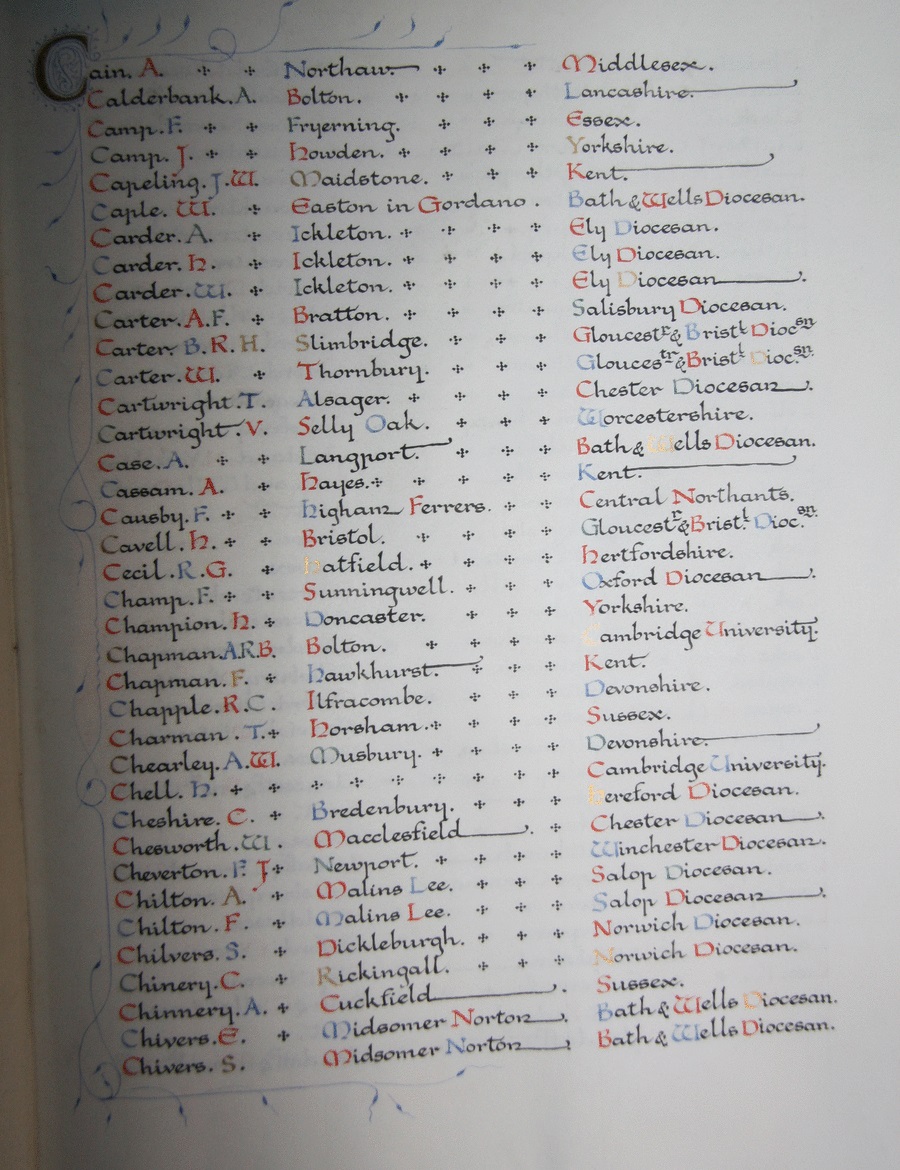 Cain. A. Northaw. Middlesex.
Calderbank. A. Bolton. Lancashire.
Camp. F. Fryerning. Essex.
Camp. J. Howden. Yorkshire.
Capeling. J. W. Maidstone. Kent.
Caple. W. Easton in Gordano. Bath & Wells Diocesan.
Carder. A. Ickleton. Ely Diocesan.
Carder. H. Ickleton. Ely Diocesan.
Carder. W. Ickleton. Ely Diocesan.
Carter. A. F. Bratton. Salisbury Diocesan.
Carter. B. R. H. Slimbridge. Gloucestr & Bristl Diocsn
Carter. W. Thornbury. Gloucestr & Bristl Diocsn.
Cartwright. T. Alsager. Chester Diocesan.
Cartwright. V. Selly Oak. Worcestershire.
Case. A. Langport. Bath & Wells Diocesan.
Cassam. A. Hayes. Kent.
Causby. F. Higham Ferrers. Central Northants.
Cavell. H. Bristol. Gloucestr & Bristl Diocsn.
Cecil. R. G. Hatfield. Hertfordshire.
Champ. F. Sunningwell. Oxford Diocesan.
Champion. H. Doncaster. Yorkshire.
Chapman. A.R.B. Bolton. Cambridge University.
Chapman. F. Hawkhurst. Kent.
Chapple. R. C. Ilfracombe. Devonshire.
Charman. T. Horsham. Sussex.
Chearley. A. W. Musbury. Devonshire.
Chell. H. Cambridge University.
Cheshire. C. Bredenbury. Hereford Diocesan.
Chesworth. W. Macclesfield. Chester Diocesan.
Cheverton. F. J. Newport. Winchester Diocesan.
Chilton. A. Malins Lee. Salop Diocesan.
Chilton. F. Malins Lee. Salop Diocesan.
Chilvers. S. Dickleburgh. Norwich Diocesan.
Chinery. C. Rickingall. Norwich Diocesan.
Chinnery. A. Cuckfield. Sussex.
Chivers. E. Midsomer Norton. Bath & Wells Diocesan.
Chivers. S. Midsomer Norton. Bath & Wells Diocesan.